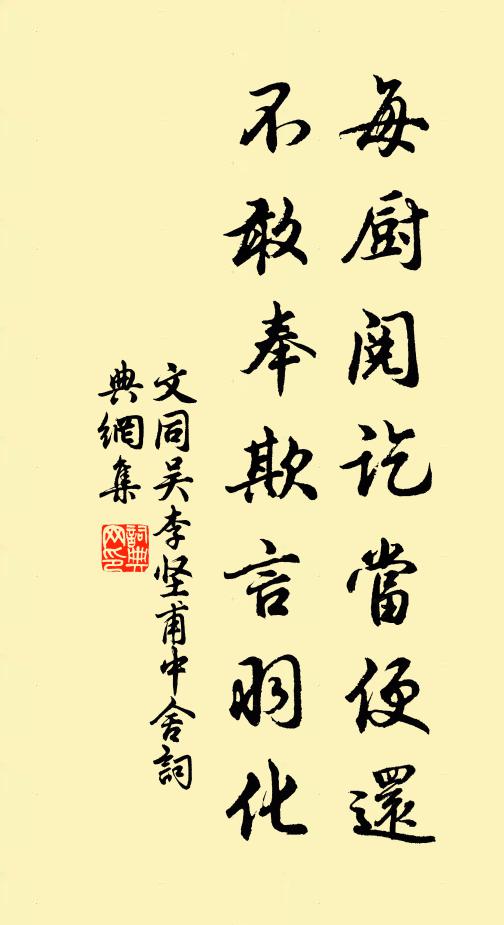 每厨阅讫當便還
不敢奉欺言羽化
文同吴李坚甫中舍詞
典網集
詞典
网印